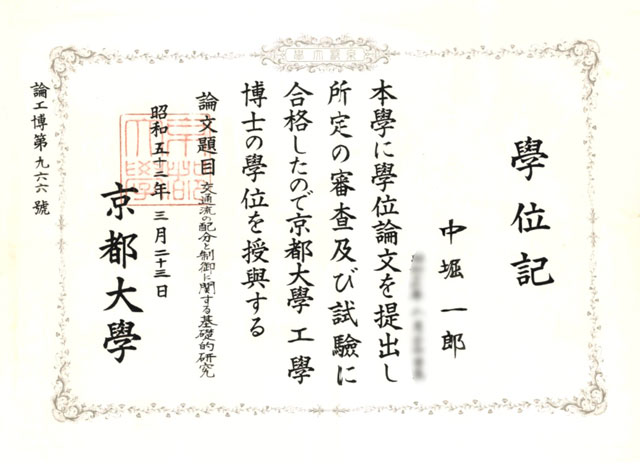 學位記
中堀一郎
本學に學位論文を提出し
所定の審査及び試驗に
合格したので京都大學工學
博士の學位を授與する
論文題目 交通流の配分と制御に関する基礎的研究
昭和五十二年三月二十三日
京都大學
論工博第九六六號